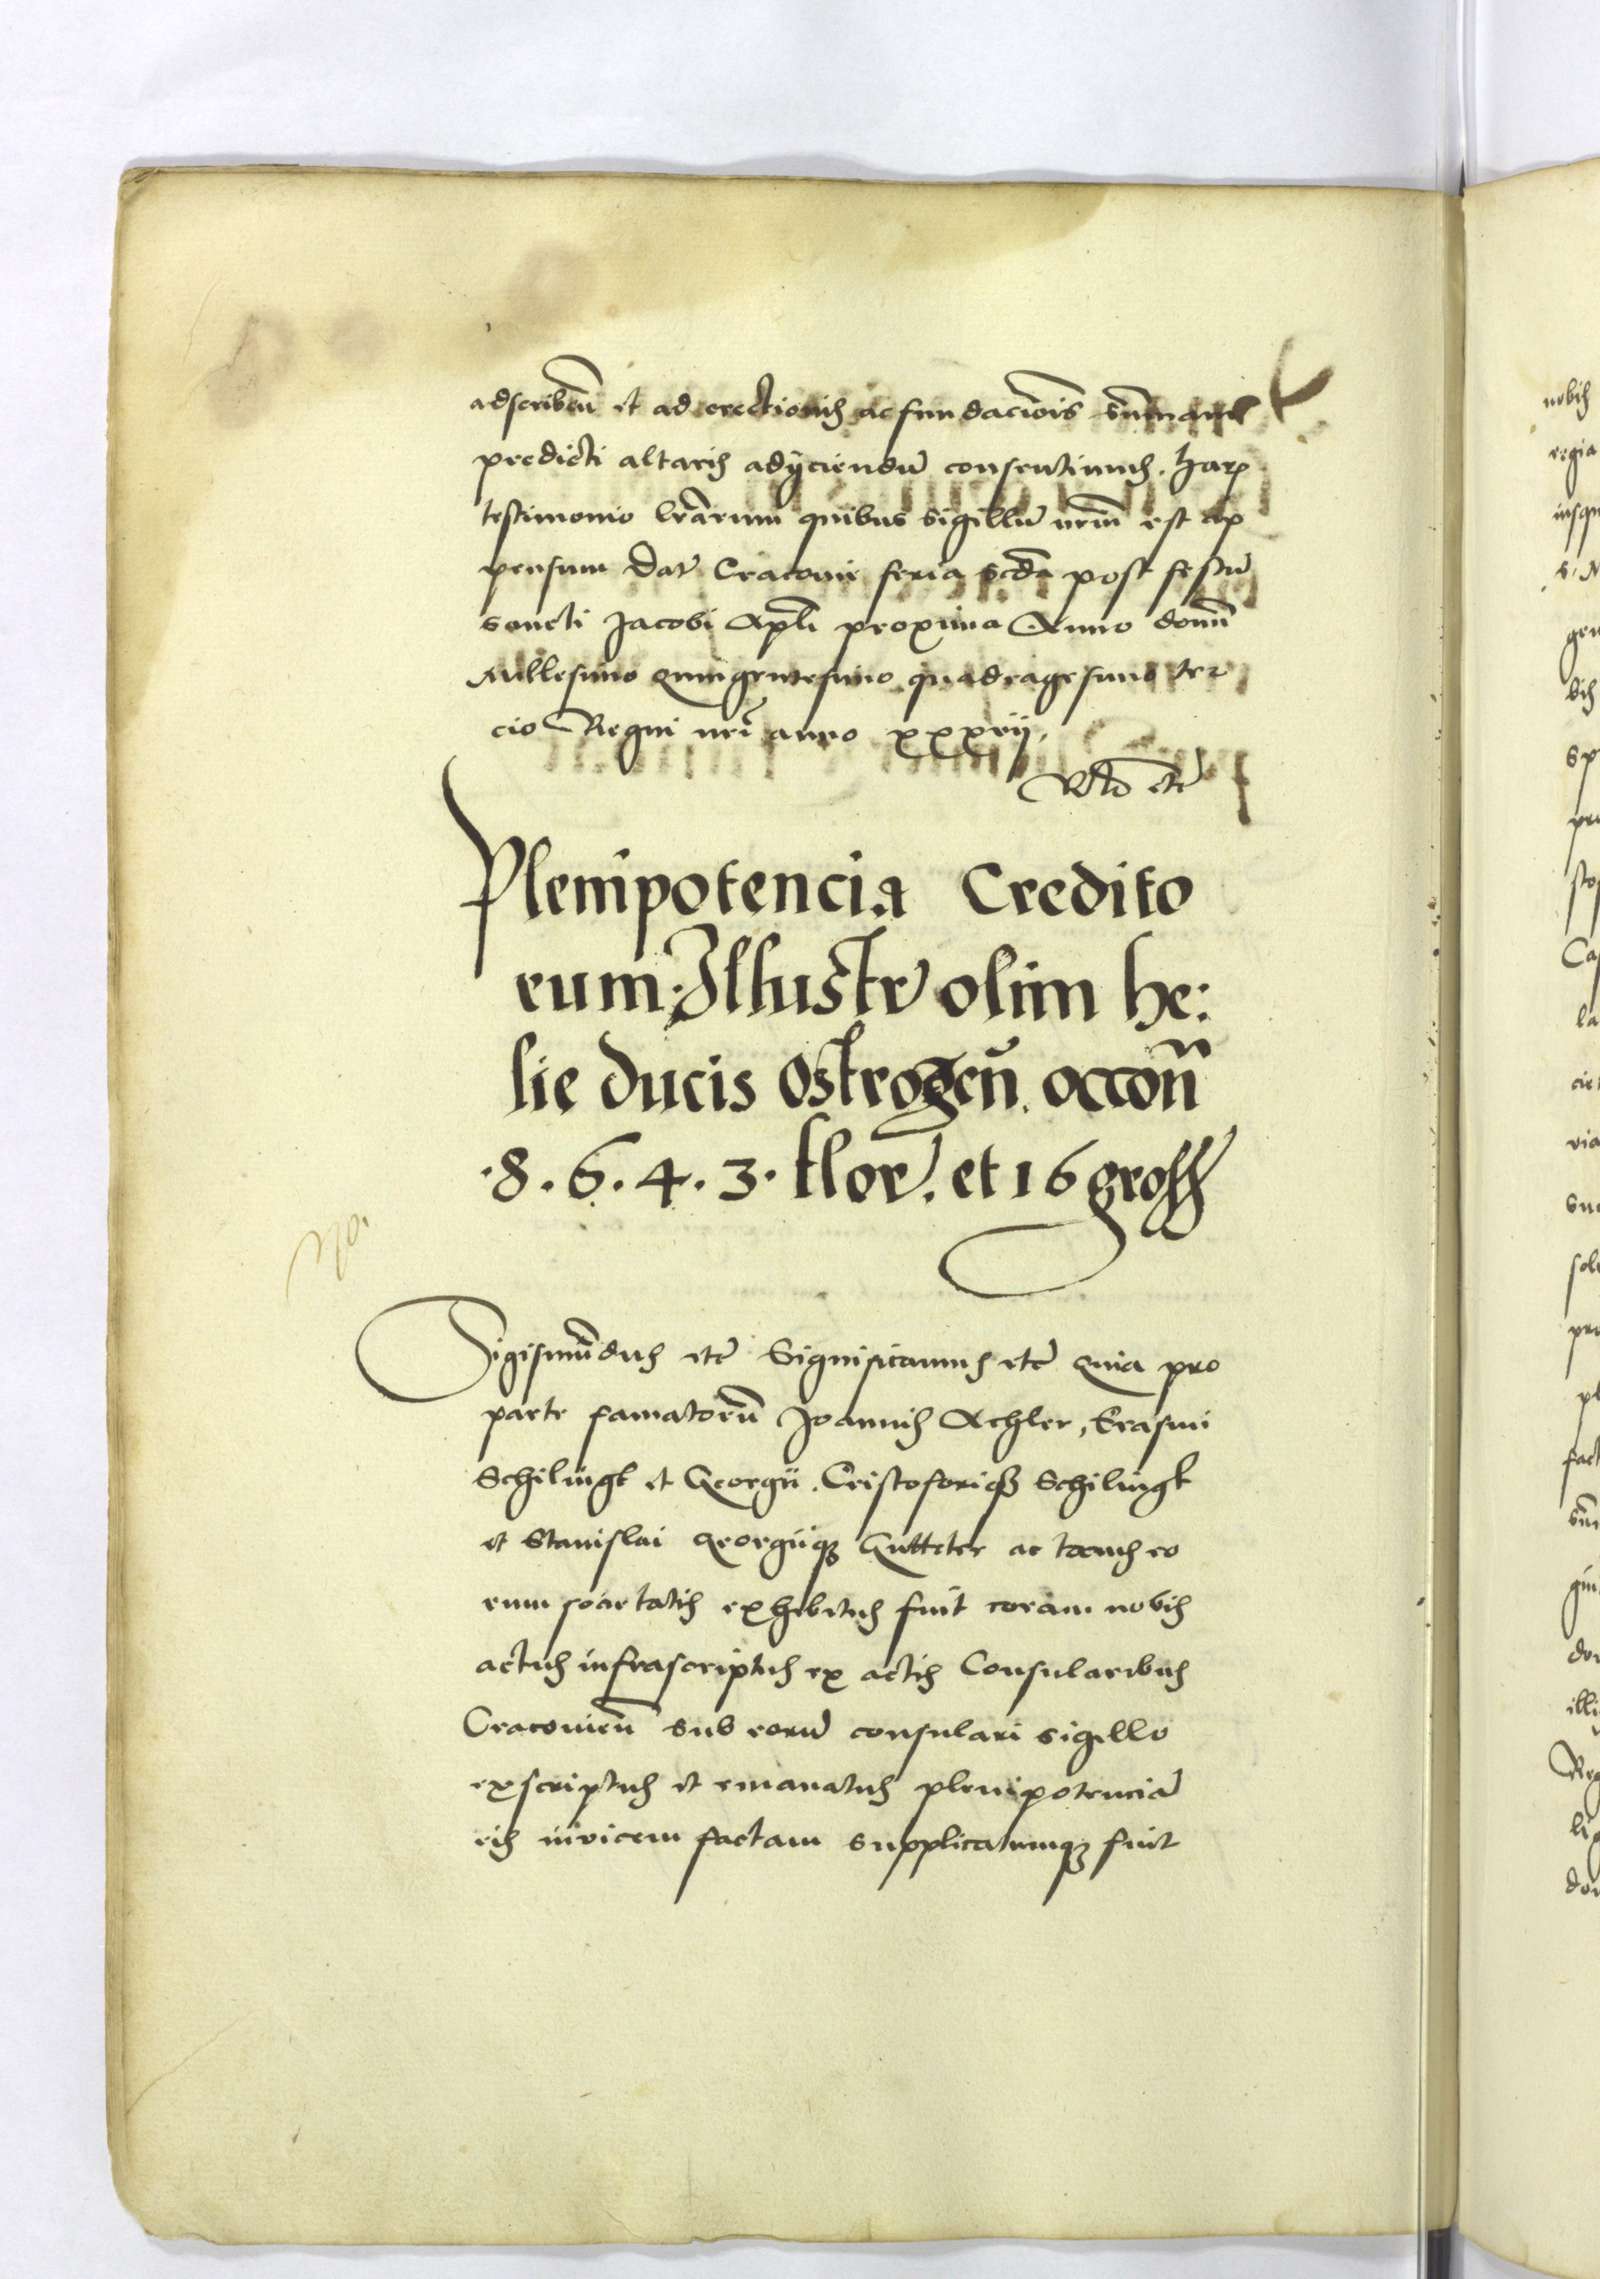 adscriben̄ et ad erectionis ac fundac̄iois sum̄am
predicti altaris adijciendū consentimus. Har
testimonio lr̄arum quibus sigillū nrm̄ est ap
pensum Dat̄ Cracovie feria scd̄a post festū
sancti Jacobi Apli̅ proxima Anno domī
Millesimo quingentesimo quadragesimo ter
cio Regni nrī anno xxxvij.
etc̄
Plenipotencia Credito
rum Illustr̄ olim he:
lie ducis Ostrogen̄. occon̄
.8.6.4.3. flor. et 16 gross
Sigismūdus etc̄ Significamus etc̄ quia pro
parte famatorū Joannis Achler, Erasmi
Schilingk et Georgii. Cristoforiqȝ Schilingk
et Stanislai Georgiiqȝ Gutteter ac tocius eo
rum societatis exhibitus fuit coram nobis
actus infrascriptus ex actis Consularibus
Cracovien̄ sub eorū consulari sigillo
exscriptus et emanatus plenipotenciā
eis invicem factam supplicatumqȝ fuit